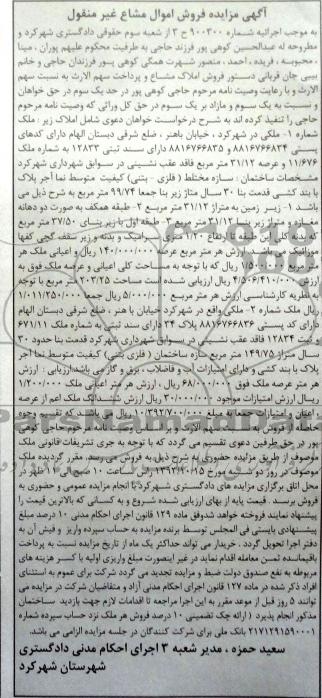 آگهی مزایده فروش اموال مشاع غیر منقول
به موجب اجرائیه شماره ۹۰۰۳۰۰ ج ۳ از شعبه سوم حقوقی دادگستری شهرکرد و
مطروحه له عبدالحسین کوهی پور فرزند حاجی به طرفیت محکوم علیهم پوران، مینا
، محبوبه، فریده، احمد، منصور شهرت همگی کوهی پور فرزندان حاجی و خانم
بیبی جان قربانی دستور فروش املاک مشاع و پرداخت سهم الارث به نسبت سهم
الارث و با رعایت وصیت نامه مرحوم حاجی کوهی پور در حد یک سوم در حق خواهان
و نسبت به یک سوم و مازاد بر یک سوم در حق کل وراثی که وصیت نامه مرحوم
حاجی را تنفیذ کرده اند به شرح درخواست خواهان دعوی شامل املاک زیر: ملک
شماره ۱- ملکی در شهرکرد، خیابان باهنر، ضلع شرقی دبستان الهام دارای کدهای
پستی ۸۸۱۶۷۶۶۸۳۴ و ۸۸۱۶۷۶۶۸۳۵ دارای سند ثبتی ۱۲۸۳۳ به شماره ملک
۱۱/۶۷۶ و عرصه ۳۱/۱۲ متر مربع فاقد عقب نشینی در سوابق شهرداری شهرکرد
مشخصات ساختمان: سازه مختلط (فلزی - بتنی) کیفیت متوسط نما آجر پلاک
با بند کشی قدمت بنا ۳۰ سال متراژ زیر بنا جمعا ۹۹/۷۴ متر مربع به شرح ذیل می
باشد ۱- زیر زمین به متراژ ۳۱/۱۲ متر مربع ۲- طبقه همکف به صورت دو دهانه
مغازه و متراژ زیر بنا ۳۱/۱۲ متر مربع ۳- طبقه اول با زیر بنای ۳۷/۵۰ متر مربع
که بدنه کلی این طبقه تا ارتفاع ۱/۲۰ متری سرامیک و بدنه و زیر سقف گچی کفها
موزائیک می باشد. ارزش هر متر مربع عرصه ۱۴۰/۰۰۰/۰۰۰ ریال و اعیانی ملک هر
متر مربع ۱/۵۰۰/۰۰۰ ریال که با توجه به مساحت کلی اعیانی و عرصه ملک فوق به
مبلغ ۴/۵۰۶/۴۱۰/۰۰۰ ریال ارزیابی شده است مساحت ۲۰۳/۲۵ متر مربع با توجه
به نظریه کارشناسی ارزش هر متر مربع ۵/۰۰۰/۰۰۰ ریال جمعا ۱/۰۱۱/۲۵۰/۰۰۰
ریال ملک شماره ۲- ملکی واقع در شهرکرد خیابان با هنر، ضلع شرقی دبستان الهام
دارای کد پستی ۸۸۱۶۷۶۶۸۳۶ پلاک ۳۴ دارای سند ثبتی به شماره ملک ۶۷۱/۱۱
و ثبت ۱۲۸۳۴ فاقد عقب نشینی در سوابق شهرداری شهرکرد قدمت بنا حدود ۳۰
سال متراژ ۱۴۹/۷۵ متر مربع سازه ساختمان (فلزی بتنی) کیفیت متوسط نما آجر
پلاک با بند کشی و دارای امتیازات آب و فاضلاب، برق و گاز می باشد ارزیابی: ارزش
هر متر عرصه ملک فوق ۶۸/۰۰۰/۰۰۰ ریال، ارزش هر متر اعیانی ملک ۱/۲۰۰/۰۰۰
ریال ارزش امتیازات موجود ۳۰/۰۰۰/۰۰۰ ریال ارزش ششدانگ ملک اعم از عرصه
و اعیان و امتیازات جمعا به مبلغ ۱۰/۳۹۲/۷۰۰/۰۰۰ ریال می باشد که تقسیم وجوه
حاصله از فروش به نسبت سهم الارث و با رعایت وصیت نامه مرحوم حاجی کوهی
پور در حق طرفین دعوی تقسیم می گردد که با توجه به جری تشریفات قانونی ملک
موصوف از طریق مزایده حضوری به شرح ذیل به فروش می رسد. مقرر گردیده ملک
موصوف در روز دو شنبه مورخ ۱۳۹۲/۱۰/۱۵ راس ساعت ۱۰ صبح الی ۱۲ ظهر در
محل اتاق برگزاری مزایده های دادگستری شهرکرد با انجام مزایده عمومی و حضوری به
فروش برسد. قیمت پایه از بهای ارزیابی شده شروع و به کسانی که بالاترین قیمت را
پیشنهاد نمایند فروخته خواهد شد وفق ماده ۱۲۹ قانون اجرای احکام مدنی ۱۰ درصد مبلغ
پیشنهادی بایستی فی المجلس توسط برنده مزایده به حساب سپرده واریز و فیش آن به
دفتر اجرا تحویل گردد، خریدار می تواند حداکثر یک ماه از تاریخ مزایده نسبت به پرداخت
باقیمانده ثمن معامله اقدام نماید در غیر اینصورت مبلغ واریزی اولیه با کسر هزینه های
مربوطه به نفع صندوق دولت ضبط و مزایده تجدید می گردد شرکت برای عموم به استثنای
افراد ذکر شده در ماده ۱۲۷ قانون اجرای احکام مدنی آزاد و متقاضیان شرکت در مزایده می
توانند ۵ روز قبل از موعد مقرر به این اجرا مراجعه تا اقدامات لازم جهت بازدید ساختمان
مذکور انجام پذیرد (ارائه چک تضمینی ۱۰ درصد فروش هر ملک نزد حساب سپرده شماره
۲۱۷۱۲۹۱۵۹۰۰۱ بانک ملی برای شرکت کنندگان در جلسه مزایده الزامی می باشد.
سعید حمزه، مدیر شعبه ۳ اجرای احکام مدنی دادگستری
شهرستان شهرکرد